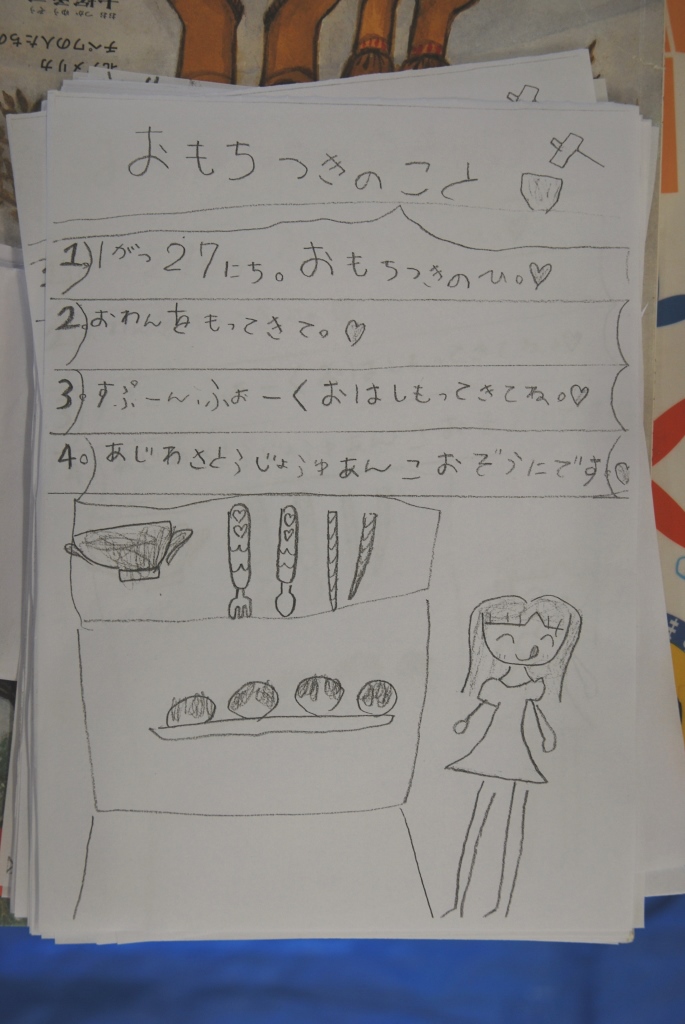 おもちつきのこと
1) 1がつ27にち。おもちつきのひ。♡
2.)おわんをもってきて。♡
3.)すぷーん、ふぉーくおはしもってきてね。♡
4.)あじわさとうじょうゆあんこおぞうにです。♡
チペワの人たちの
北アメリカ